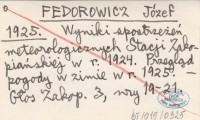 FEDOROWICZ Józef
1925. Wyniki spostrzeżeń
meteorologicznych Stacji Zako-
piańskiej w r. 1924. Przegląd
pogody w zimie w r. 1925. -
Głos Zakop. 3, nry 19-21.